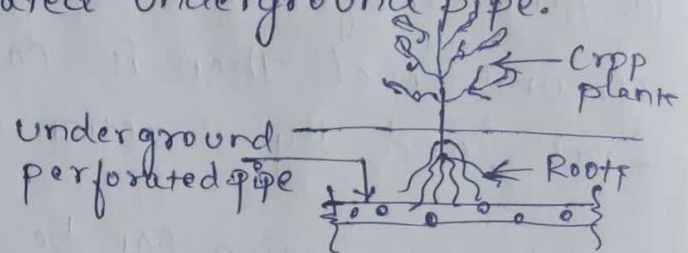 ated underground pipe.
Crop
plant
underground
perforated pipe
Roots